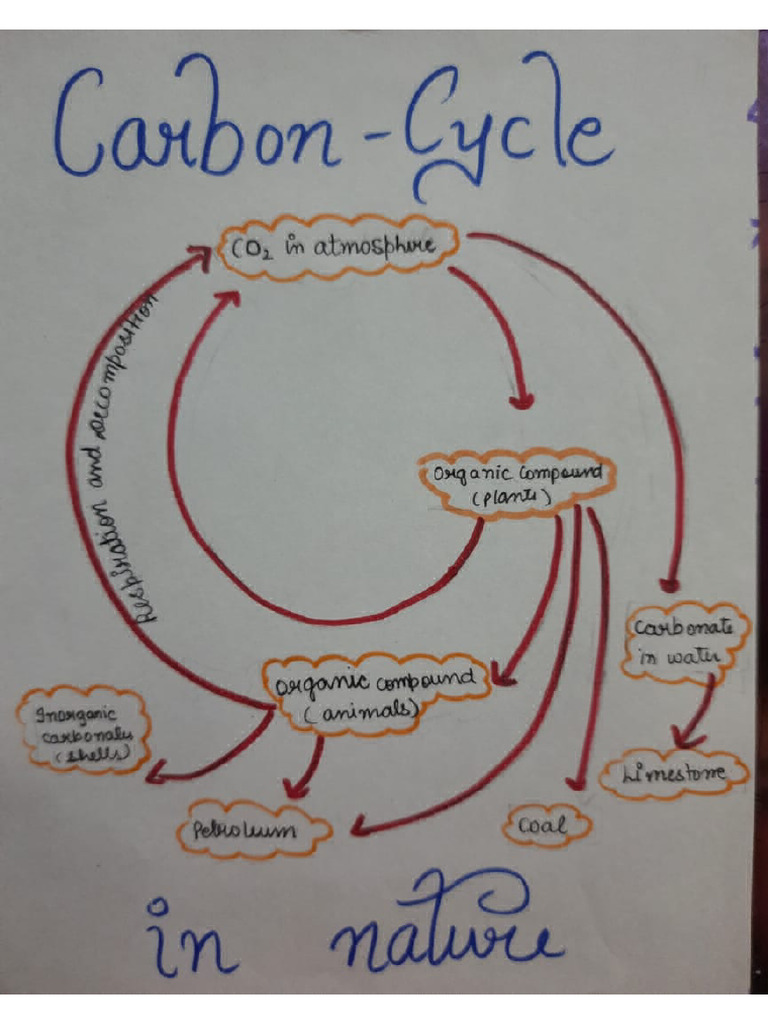 Carbon-Cycle
CO₂ in atmosphire
Respiration and decomposition
Organic compound
(plants)
Carbonate
in water
Organic compound
(animals)
Inorganic
carbonates
(shells)
Limestone
Petroleum
Coal
in nature